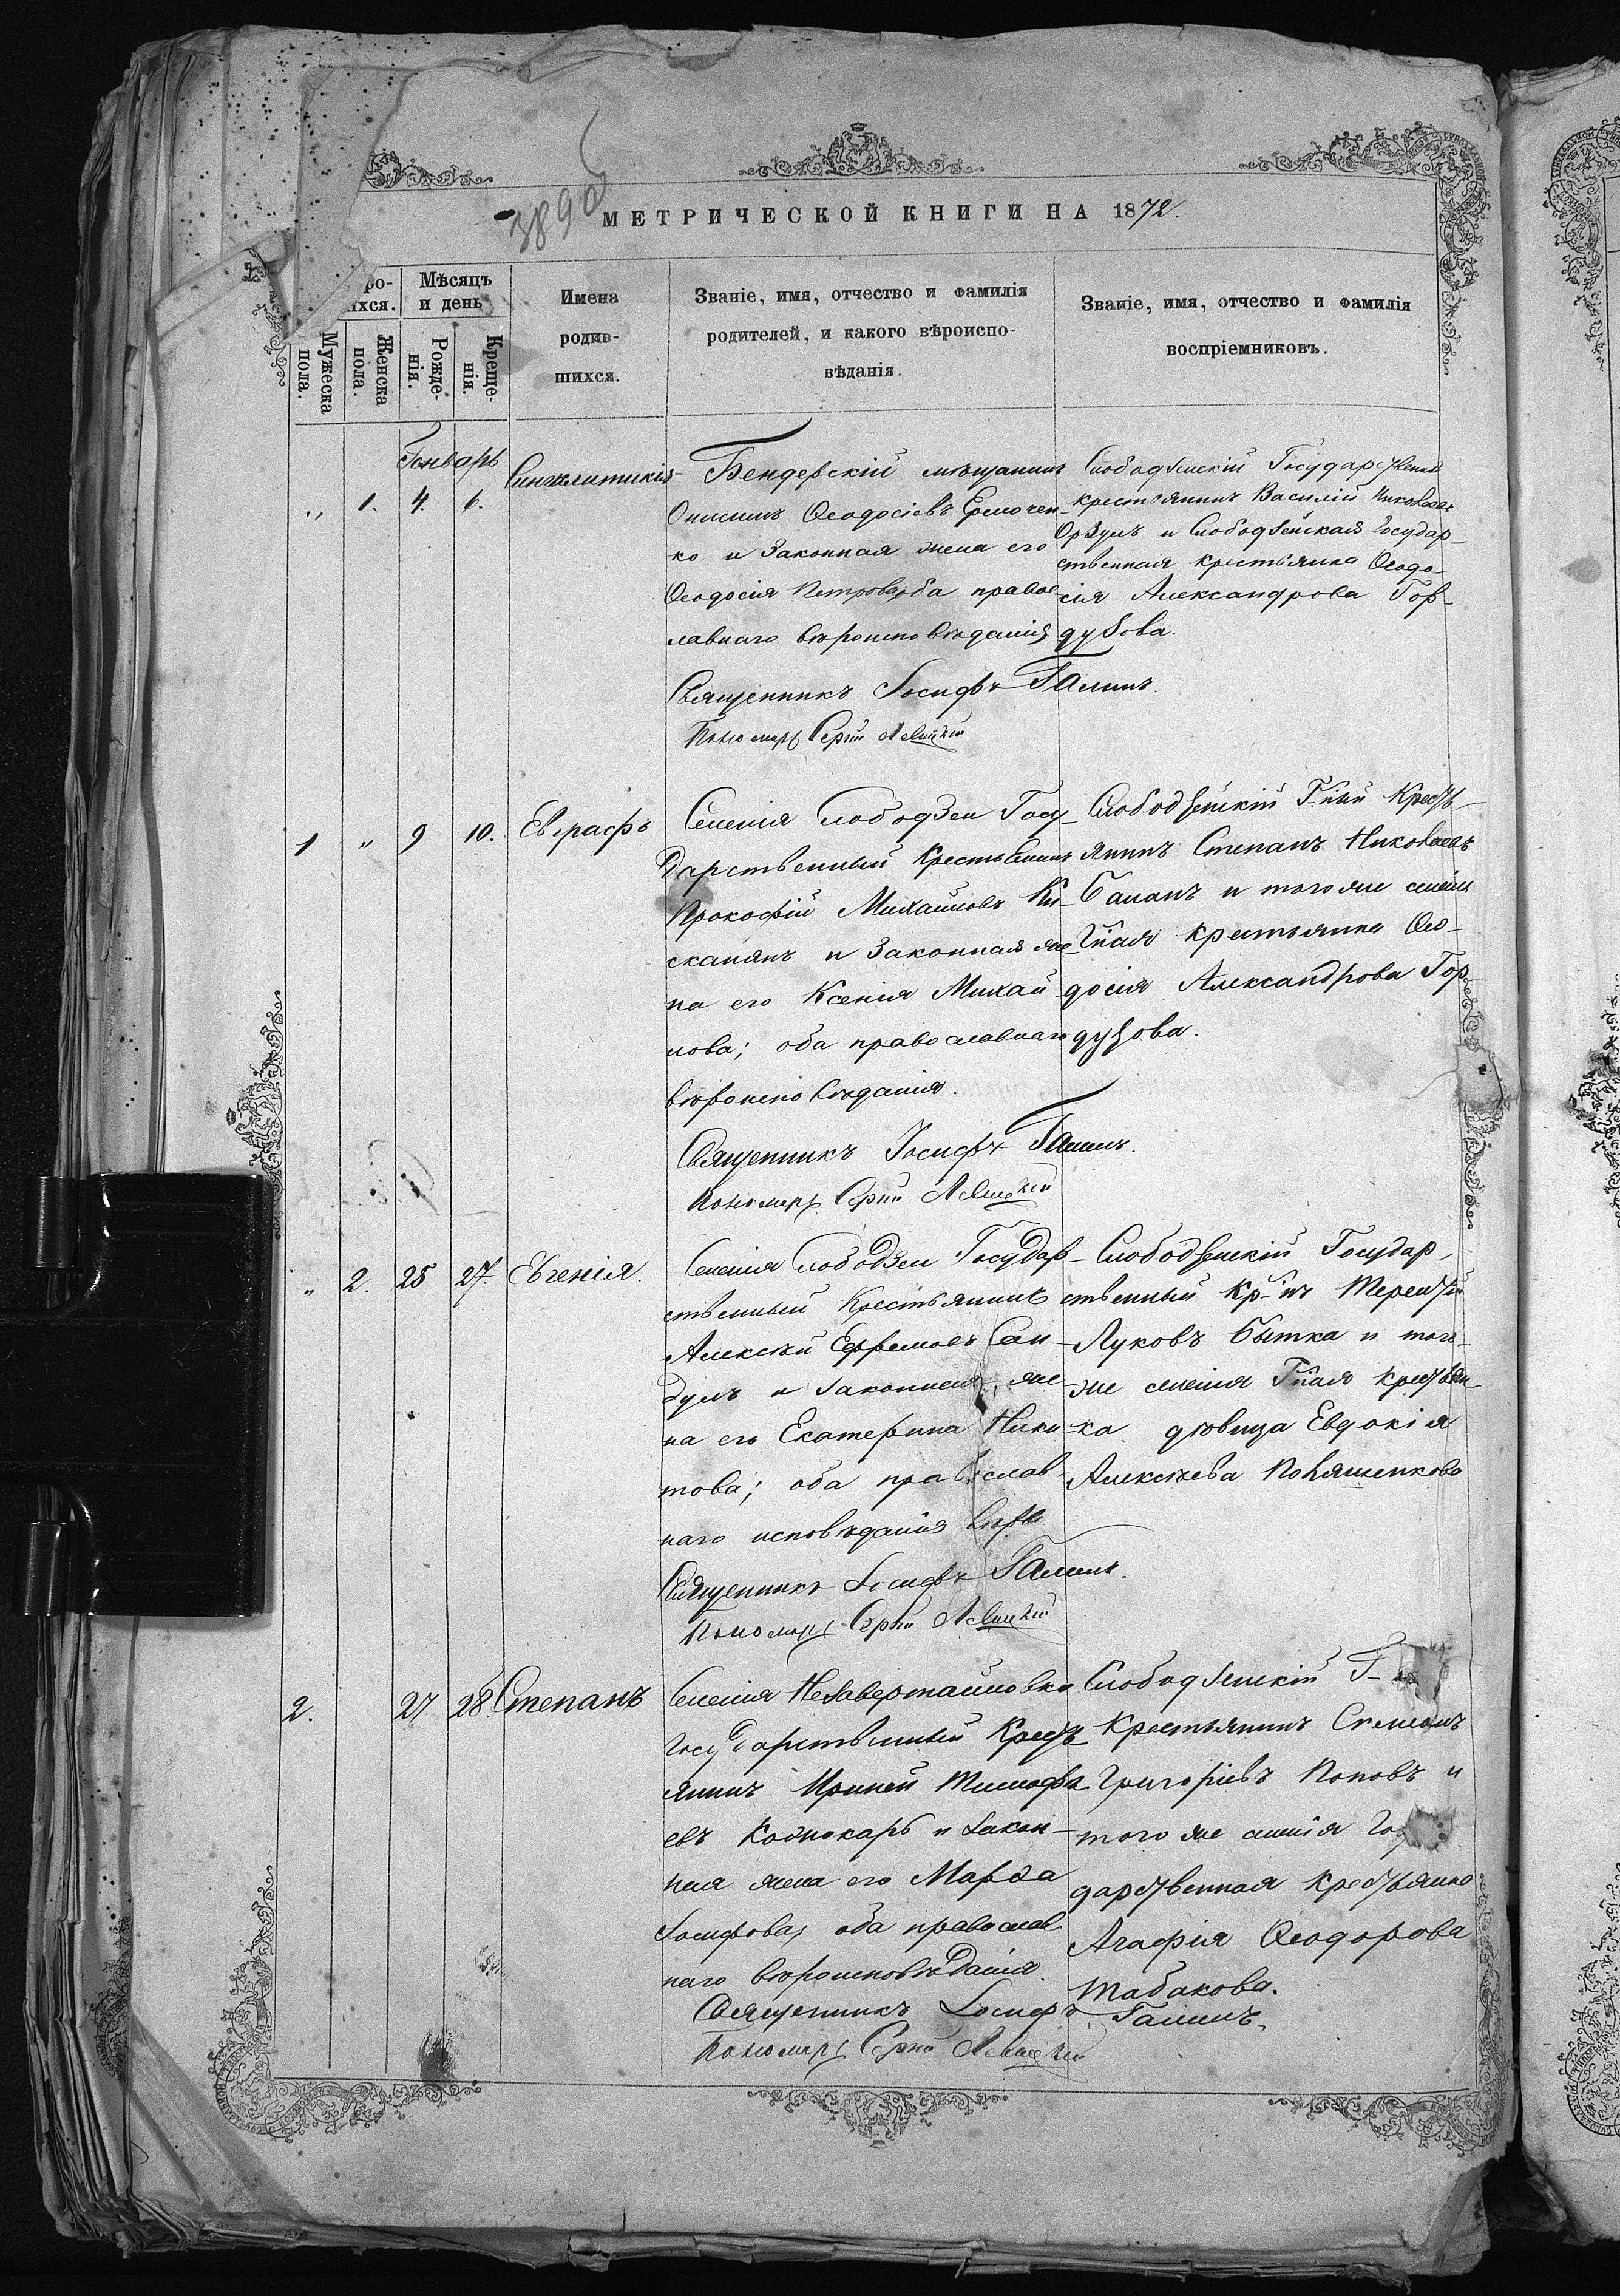 3890
МЕТРИЧЕСКОЙ КНИГИ НА 1872.
ро-
ихся.
Мѣсяцъ
и день
Мужеска
пола.
Женска
пола.
Рожде-
нія.
Креще-
нія.
Имена
родив-
шихся.
Званіе, имя, отчество и фамилія
родителей, и какого вѣроиспо-
вѣданія.
Званіе, имя, отчество и фамилія
воспріемниковъ.
Генварь
„ 1. 4. 6.
Синклитикія
Бендерскій мѣщанинъ
Онисимъ Ѳеодосіевъ Ермочен-
ко и Законная жена его
Ѳеодосія Петрова, оба правос-
лавнаго вѣроисповѣданія
Священникъ Іосифъ Галинъ.
Пономарь Сергій Левицкій
Слободзейскій Государственный
крестьянинъ Василій Николаевъ
Орзулъ и Слободзейская Государ-
ственная крестьянка Ѳеодо-
сія Александрова Гор-
дузова.
1 „ 9 10. Евграфъ
Селенія Слободзеи Госу-
дарственный Крестьянинъ
Прокофій Михайловъ Ки-
сканянъ и Законная же-
на его Ксенія Михай-
лова; оба православнаго
вѣроисповѣданія.
Священникъ Іосифъ Галинъ.
Пономарь Сергій Левицкій
Слободзейскій Г-ный Кресть-
янинъ Степанъ Николаевъ
Баланъ и того же селенія
Г-ная крестьянка Ѳео-
досія Александрова Гор-
дузова.
„ 2. 25 27. Евгенія.
Селенія Слободзеи Государ-
ственный Крестьянинъ
Алексѣй Ефремовъ Сан-
дулъ и законная же-
на его Екатерина Ники-
това; оба православ-
наго исповѣданія вѣры
Священникъ Іосифъ Галинъ.
Пономарь Сергій Левицкій
Слободзейскій Государ-
ственный Кр-нъ Терентій
Луковъ Бытка и того-
же селенія Г-ная крестьян-
ка дѣвица Евдокія
Алексѣева
2. 27 28. Степанъ
Селенія Незавертайловки
Государственный Кресть-
янинъ Ириней Тимофе-
евъ Койнокарь и закон-
ная жена его Марѳа
Іосифова, оба православ-
наго вѣроисповѣданія.
Священникъ Іосифъ Галинъ.
Пономарь Сергій Левицкій
Слободзейскій Г-
Крестьянинъ Симеонъ
Григоріевъ Поповъ и
того же селенія Госу-
дарственная Крестьянка
Агафія Ѳеодорова
Табакова.